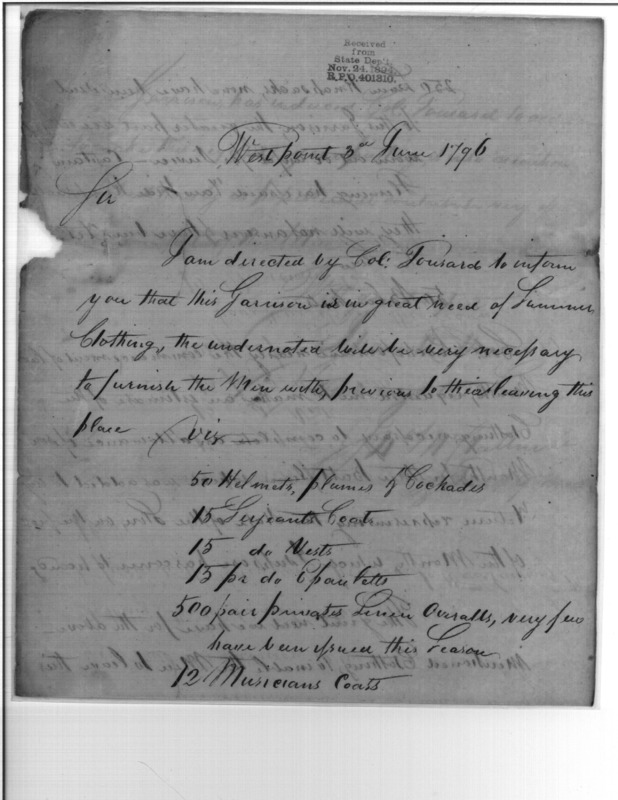 Received
from
State Dep't
Nov. 24. 1894
R.P.O. 401310.
West point 3d June 1796
Sir
I am directed by Col: Tousard to inform
you that this Garrison is in great need of Summer
Clothing, the undernoted will be very necessary
to furnish the Men with, previous to their leaving this
place viz
50 Helmets, plumes & Cockades
15 Serjeants Coats
15 do Vests
15 pr do Epauletts
500 pair privates Linen Overalls, very few
have been issued this Season
12 Musicians Coats